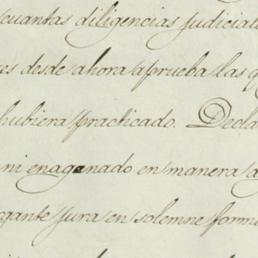 cuantas diligencias judiciale
es desde ahora aprueba las q
hubiera practicado. Decla
ni enagenado en manera a
gante jura en solemne forma